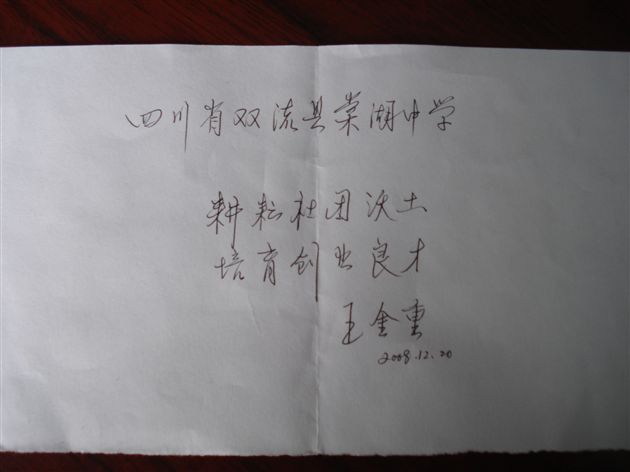 四川省双流县棠湖中学
耕耘社团沃土
培育创业良才
王金重
2008.12.20